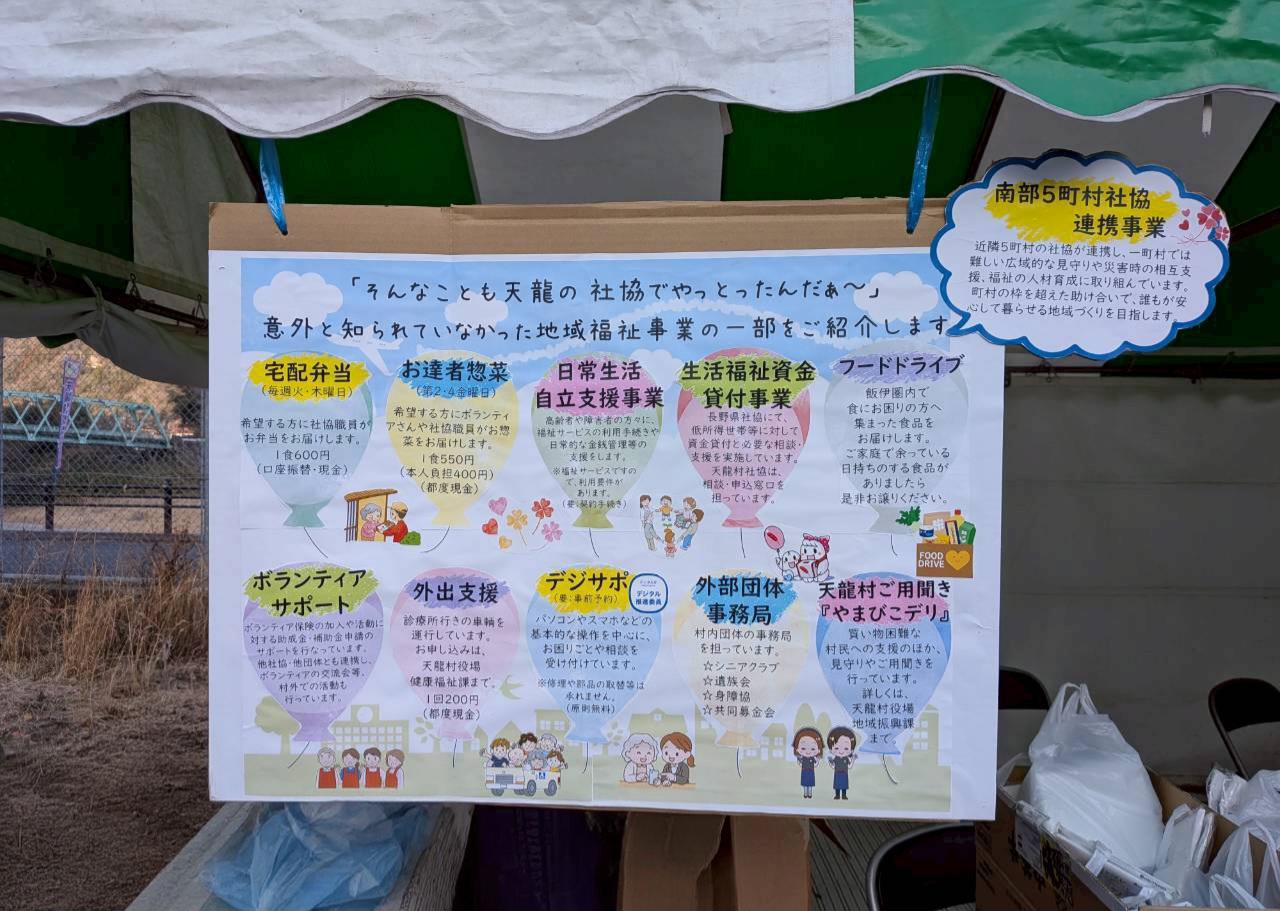 南部5町村社協
連携事業
近隣5町村の社協が連携し、一町村では
難しい広域的な見守りや災害時の相互支
援、福祉の人材育成に取り組んでいます。
町村の枠を超えた助け合いで、誰もが安
心して暮らせる地域づくりを目指します。
「そんなことも天龍の 社協でやっとったんだぁ〜」
意外と知られていなかった地域福祉事業の一部をご紹介します
宅配弁当
(毎週火・木曜日)
希望する方に社協職員が
お弁当をお届けします。
1食600円
(口座振替・現金)
お達者惣菜
(第2・4金曜日)
希望する方にボランティ
アさんや社協職員がお惣
菜をお届けします。
1食550円
(本人負担400円)
(都度現金)
日常生活
自立支援事業
高齢者や障害者の方々に、
福祉サービスの利用手続きや
日常的な金銭管理等の
支援をします。
※福祉サービスですの
で、利用要件が
あります。
(要:契約手続き)
生活福祉資金
貸付事業
長野県社協にて、
低所得世帯等に対して
資金貸付と必要な相談・
支援を実施しています。
天龍村社協は、
相談・申込窓口を
担っています。
フードドライブ
飯伊圏内で
食にお困りの方へ
集まった食品を
お届けします。
ご家庭で余っている
日持ちのする食品が
ありましたら
是非お譲りください。
FOOD
DRIVE
ボランティア
サポート
ボランティア保険の加入や活動に
対する助成金・補助金申請の
サポートを行なっています。
他社協・他団体とも連携し、
ボランティアの交流会等、
村外での活動も
行っています。
外出支援
診療所行きの車輌を
運行しています。
お申し込みは、
天龍村役場
健康福祉課まで。
1回200円
(都度現金)
デジサポ
(要:事前予約)
デジタル
推進委員
パソコンやスマホなどの
基本的な操作を中心に、
お困りごとや相談を
受け付けています。
※修理や部品の取替等は
承れません。
(原則無料)
外部団体
事務局
村内団体の事務局
を担っています。
☆シニアクラブ
☆遺族会
☆身障協
☆共同募金会
天龍村ご用聞き
『やまびこデリ』
買い物困難な
村民への支援のほか、
見守りやご用聞きを
行っています。
詳しくは、
天龍村役場
地域振興課
まで。